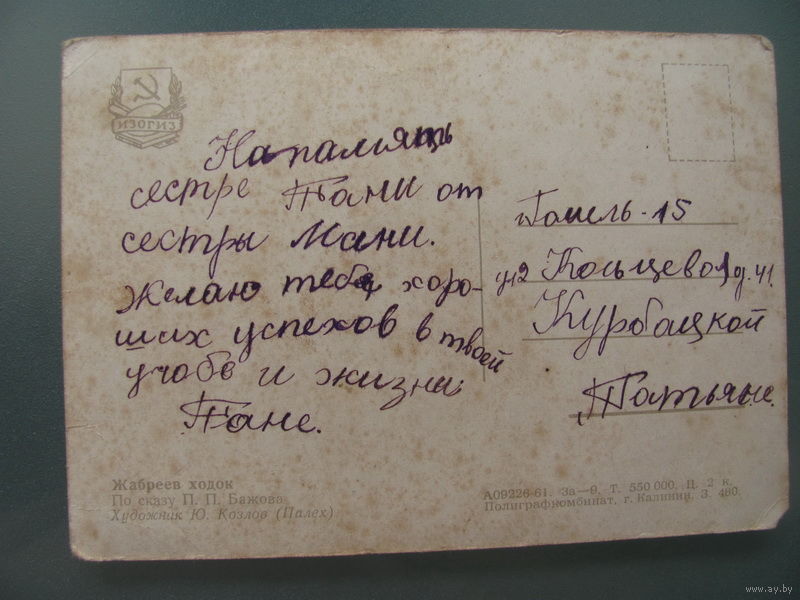 ИЗОГИЗ
На память
сестре Тани от
сестры Мани.
Желаю тебе хоро-
ших успехов в твоей
учобе и жизни
Тане.
г. Гомель-15
Кольцевой д. 41
Курбацкой
Татьяне.
Жабреев ходок
По сказу П. П. Бажова
Художник Ю. Козлов (Палех)
А09226-61. За—9. Т. 550 000. Ц. 2 к.
Полиграфкомбинат, г. Калинин. З. 480.
www.ay.by